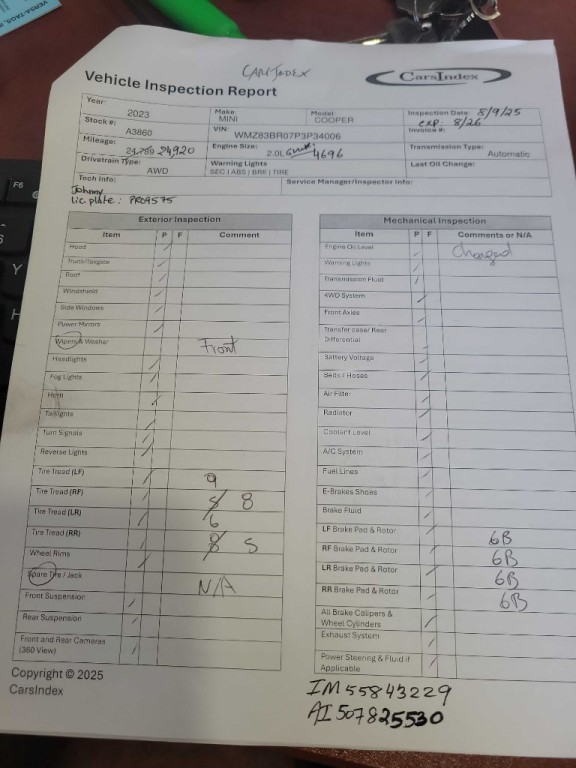 CARINDEX
Vehicle Inspection Report
CarsIndex
Year: 2023 Make MINI Model COOPER Inspection Date: 8/9/25
exp: 8/26
Stock #: A3860 VIN: WMZ83BR07P3P34006 Invoice #:
Mileage: 24,920 Engine Size: 2.0L 4696 Transmission Type: Automatic
Drivetrain Type: AWD Warning Lights SEC | ABS | BRK | TIRE Last Oil Change:
Tech Info: Johnny Service Manager/Inspector Info:
Lic plate: PR09575
Exterior Inspection
Item P F Comment
Hood
Trunk/Tailgate
Roof
Windshield
Side Windows
Power Mirrors
Wipers & Washer Front
Headlights
Fog Lights
Horn
Taillights
Turn Signals
Reverse Lights
Tire Tread (LF) 9
Tire Tread (RF) 8
Tire Tread (LR) 6
Tire Tread (RR) 8 5
Wheel Rims
Spare Tire / Jack N/A
Front Suspension
Rear Suspension
Front and Rear Cameras
(360 View)
Mechanical Inspection
Item P F Comments or N/A
Engine Oil Level Changed
Warning Lights
Transmission Fluid
4WD System
Front Axles
Transfer case/Rear
Differential
Battery Voltage
Belts / Hoses
Air Filter
Radiator
Coolant Level
A/C System
Fuel Lines
E-Brakes Shoes
Brake Fluid
LF Brake Pad & Rotor 6B
RF Brake Pad & Rotor 6B
LR Brake Pad & Rotor 6B
RR Brake Pad & Rotor 6B
All Brake Calipers &
Wheel Cylinders
Exhaust System
Power Steering & Fluid if
Applicable
Copyright © 2025
CarsIndex
IM 55843229
AI 507825530
F6
Y
H